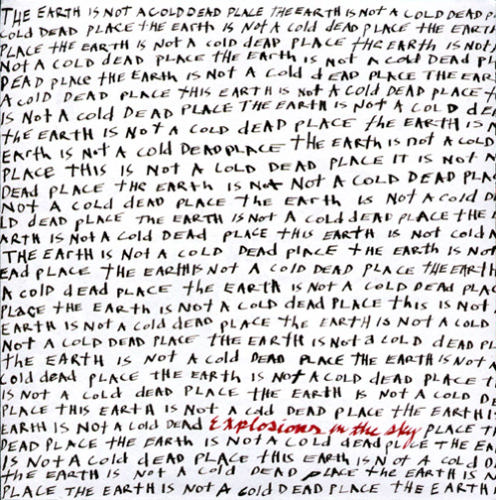 THE EARTH IS NOT A COLD DEAD PLACE THE EARTH IS NOT A COLD DEAD P
COLD DEAD PLACE THE EARTH IS NOT A COLD dEAd PLACE THE EARTH
PLACE THE EARTH IS NOT A COLD dEAD PLACE THE EARTH IS NOT
NOT A COLD DEAD PLACE THE EARTH IS NOT A COLD DEAD PL
DEAD PLACE THE EARTH IS NOT A COLD dEAD PLACE THE EAR
A COLD DEAD PLACE THIS EARTH IS NOT A COLD DEAD PLACE T
IS NOT A COLD DEAD PLACE THE EARTH IS NOT A COLD dE
the EARTH IS NOT A COLD dEAD PLACE the EARTH IS NOT A
EARTH IS NOT A COLD DEAD PLACE tHE EARTH IS NOT A COLD
PLACE THIS IS NOT A COLD DEAD PLACE IT IS NOT A
DEAD PLACE THE EARTH IS NOT NOT A COLD DEAD PLA
NOT A COLD DEAD PLACE THE EARTH IS NOT A COLD D
LD DEAD PLACE THE EARTH IS NOT A COLD DEAD PLACE THE
ARTH IS NOT A COLD DEAD PLACE THIS EARTH IS NOT COLD A
THE EARTH IS NOT A COLD DEAD PLACE THE EARTH IS NOT
EAD PLACE THE EARTH IS NOT A COLD DEAD PLACE THE EARTH
A COLD DEAD PLACE THE EARTH IS NOT A COLD DEAD PLAC
PLACE tHE EARTH IS NOT A COLD DEAD PLACE this IS NOT
EARTH IS NOT A COLD DEAD PLACE THE EARTH IS NOT A COLD
NOT A COLD DEAD PLACE THE EARTH IS NOT A COLD DEAD PL
the EARTH IS NOT A COLD DEAD PLACE THE EARTH IS NOT A
COLD DEAD PLACE THE EARTH IS NOT A COLD DEAD PLACE T
IS NOT A COLD DEAD PLACE THE EARTH IS NOT A COLD D
PLACE THIS EARTH IS NOT A COLD DEAD PLACE THE EARTH I
EARTH IS NOT A COLD DEAD Explosions in the sky PLACE T
DEAD PLACE THE EARTH IS NOT A COLD DEAD PLACE THE EA
IS NOT A COLD DEAD PLACE THIS EARTH IS NOT A COLD D
the EARTH IS NOT A COLD DEAD PLACE THE EARTH IS
PLACE THE EARTH IS NOT A COLD DEAD PLACE THE EARTH IS NOT